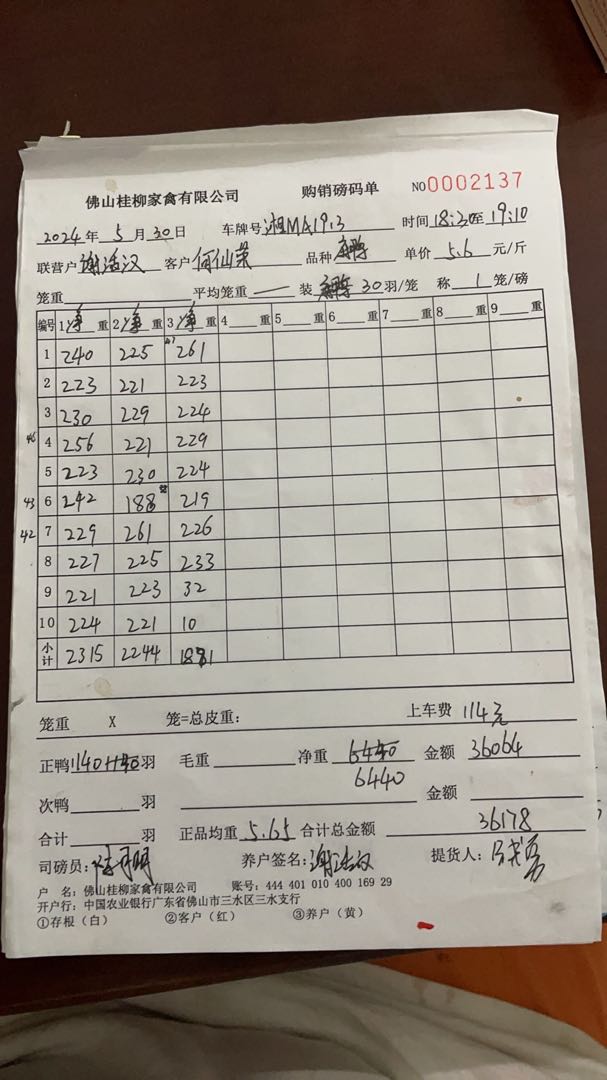 佛山桂柳家禽有限公司 购销磅码单 NO0002137
2024年 5月30日 车牌号湘MA19.3 时间18:30至19:10
联营户谢活汉 客户何仙荣 品种 单价5.6元/斤
笼重 平均笼重一 装30羽/笼 称1笼/磅
编号 1净重 2净重 3净重 4重 5重 6重 7重 8重 9重
1 240 225 47 261
2 223 221 223
3 230 229 224
46 4 256 221 229
5 223 230 224
43 6 242 188 219
42 7 229 261 226
8 227 225 233
9 221 223 32
10 224 221 10
小计 2315 2244 1881
笼重 X 笼=总皮重: 上车费 114元
正鸭1140羽 毛重 净重 6440 金额 36064
6440
次鸭 羽 金额
合计 羽 正品均重 5.65 合计总金额 36178
司磅员: 养户签名:谢活汉 提货人:
户 名:佛山桂柳家禽有限公司 账号:444 401 010 400 169 29
开户行:中国农业银行广东省佛山市三水区三水支行
①存根(白) ②客户(红) ③养户(黄)